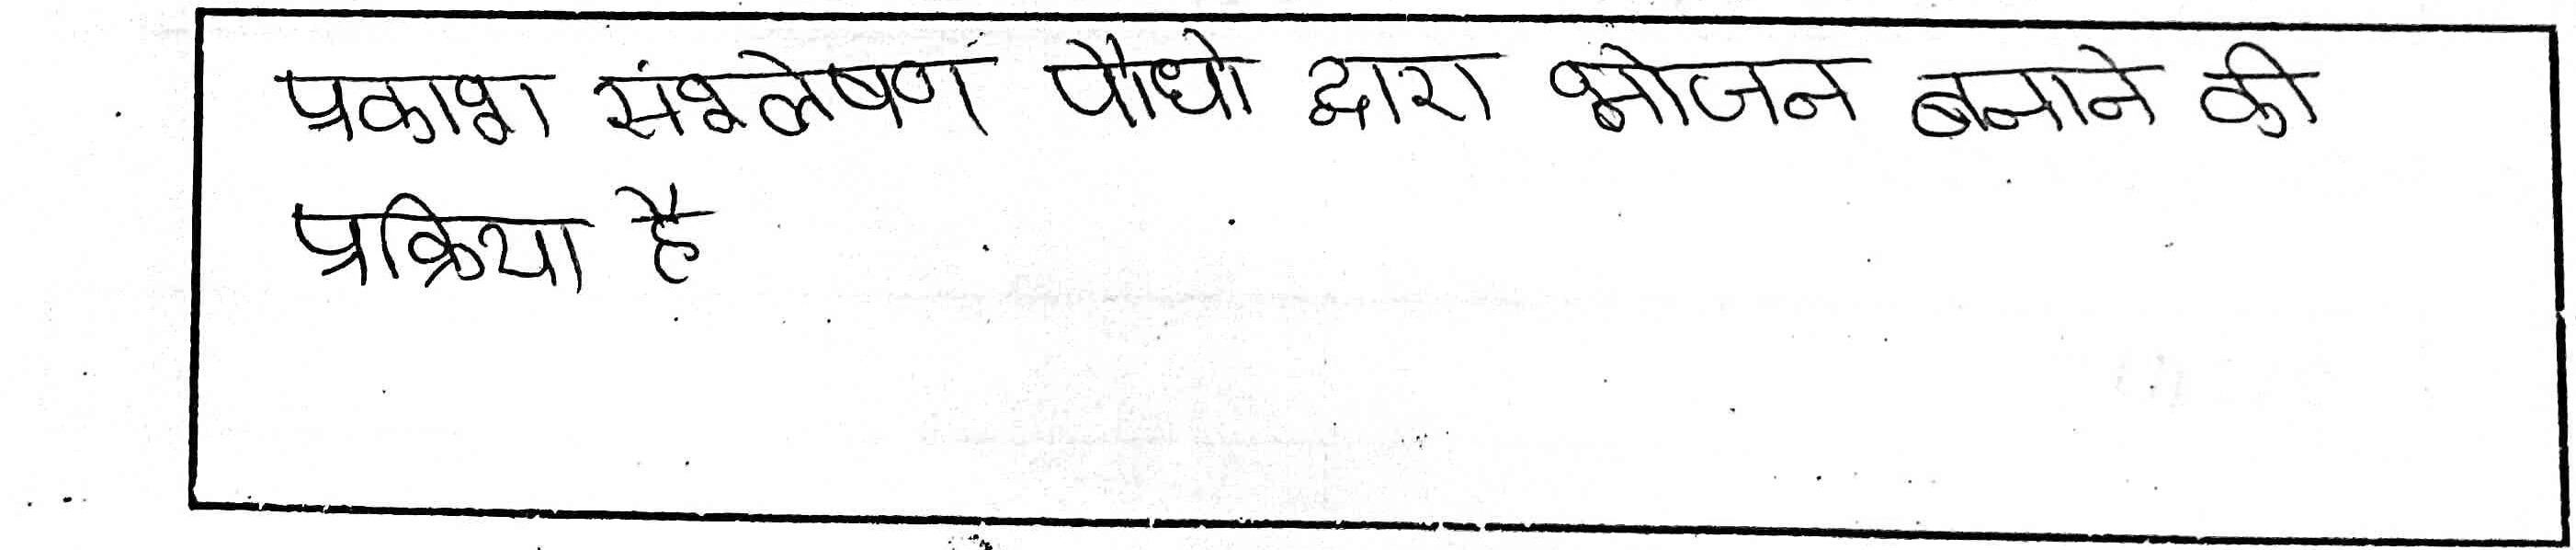 प्रकाश संश्लेषण पौधो द्वारा भोजन बनाने की
प्रक्रिया है